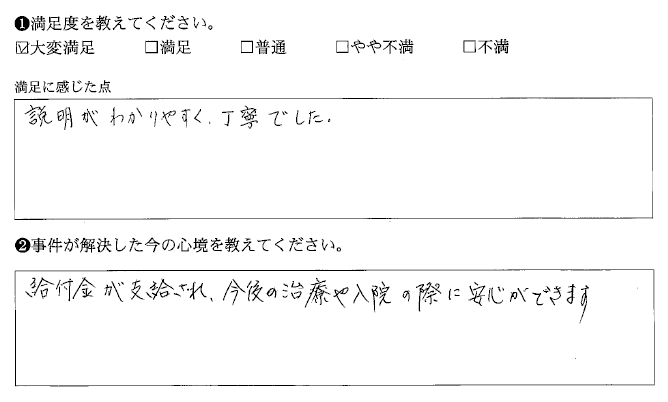 ❶満足度を教えてください。
☑大変満足 □満足 □普通 □やや不満 □不満
満足に感じた点
説明がわかりやすく、丁寧でした。
❷事件が解決した今の心境を教えてください。
給付金が支給され、今後の治療や入院の際に安心ができます